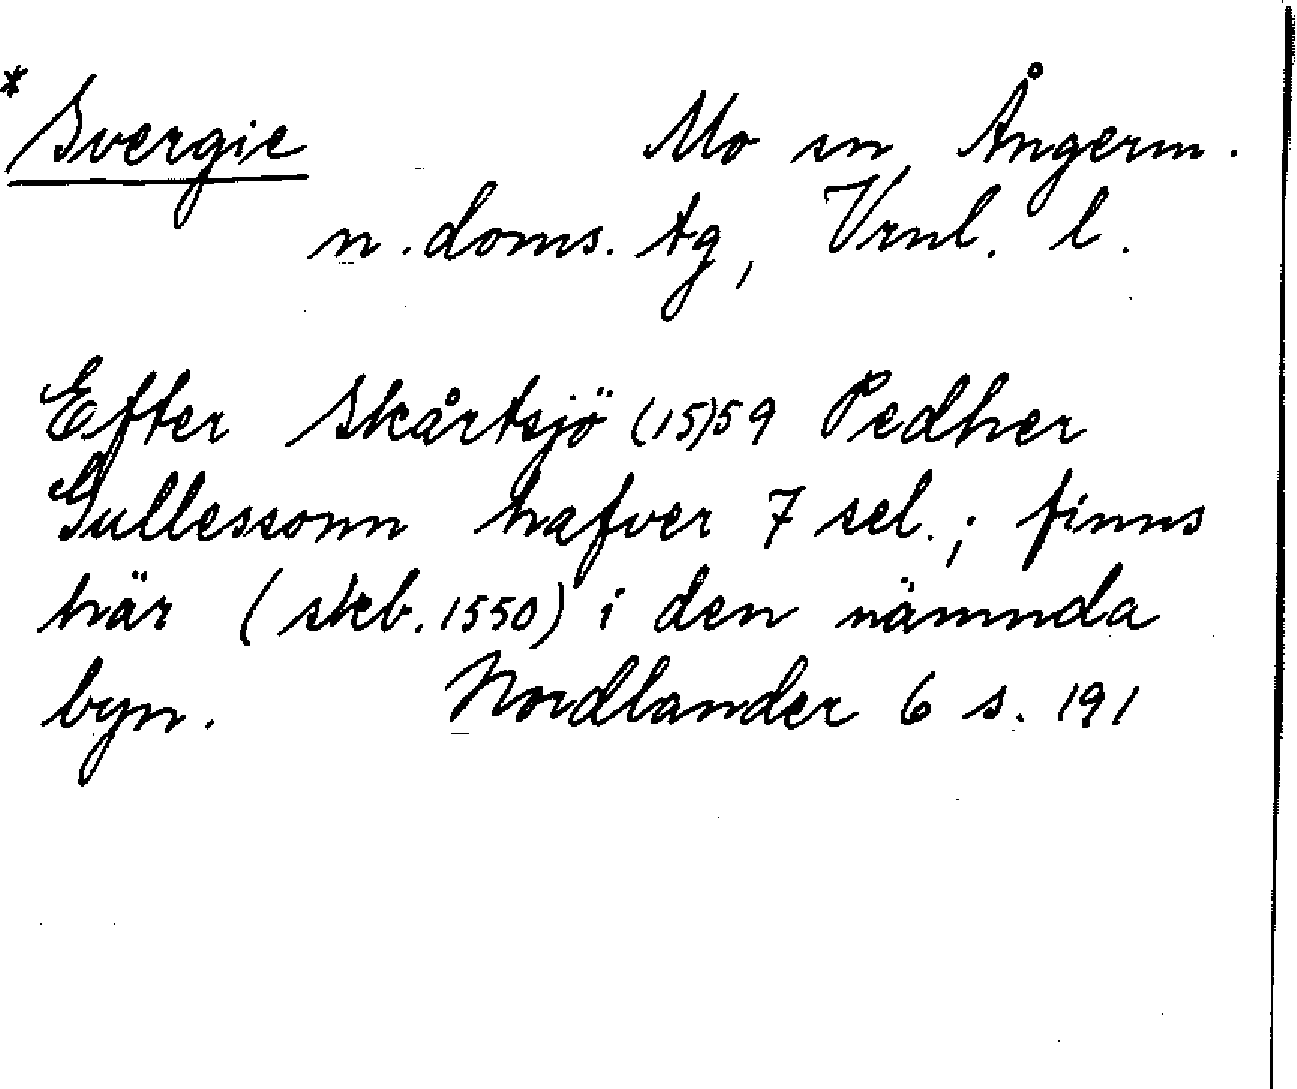 * Svergie Mo sn Ångerm.
n. doms. tg, Vrnl. l.
Efter Skårtsjö (15)59 Pedher
Gullessonn hafver 7 sel.; finns
här (skb. 1550) i den nämnda
byn. Nordlander 6 s. 191